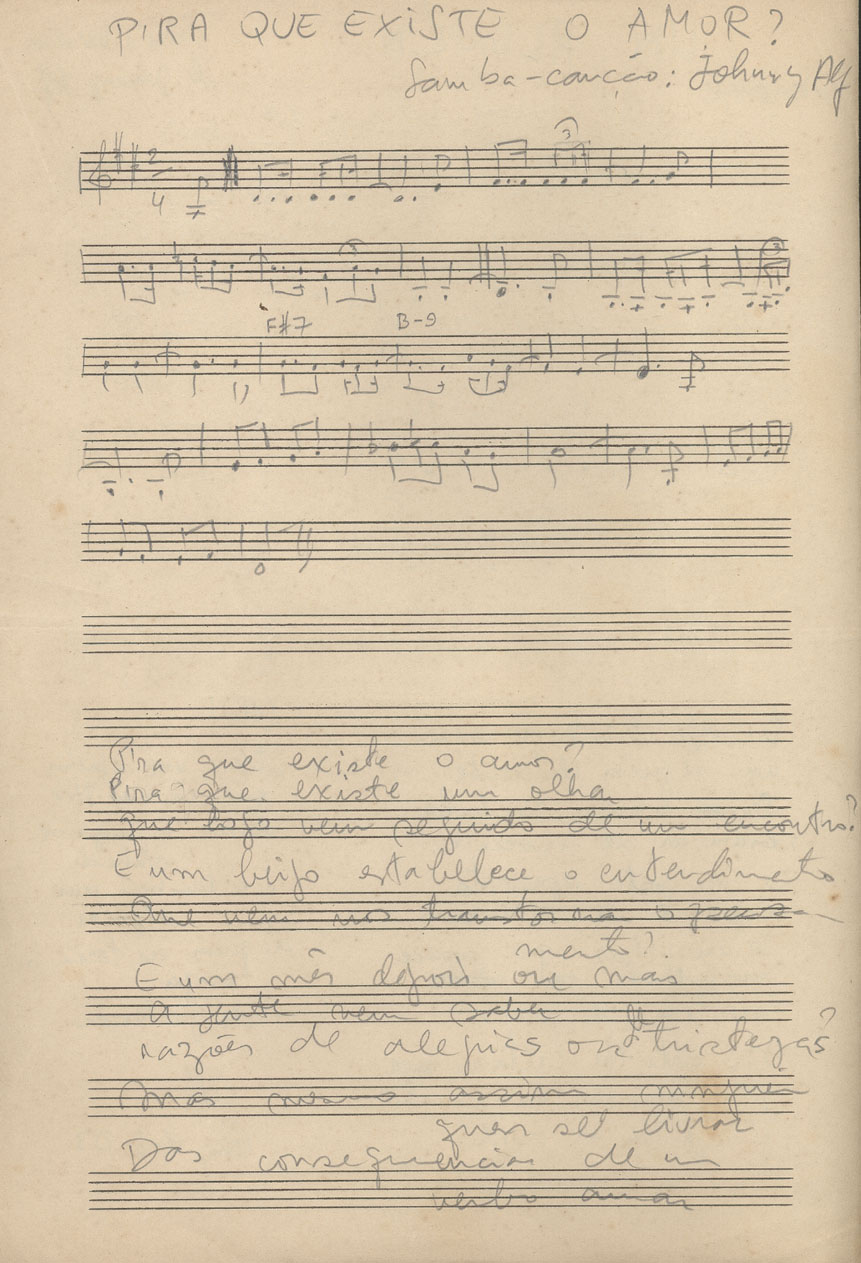 PIRA QUE EXISTE O AMOR?
Samba-canção: Johnny Alf
2
4
3
3
3
F#7 B-9
Pira que existe o amor?
Pira que existe um olhar
que logo vem seguido de um encontro?
E um beijo estabelece o entendimento
Que vem nos transtorna o pensa
mento?
E um mês depois ou mas
a gente nem saber
razões de alegrias ou de tristezas?
Mas mesmo assim ninguém
quer se livrar
Das consequencias de um
verbo amar